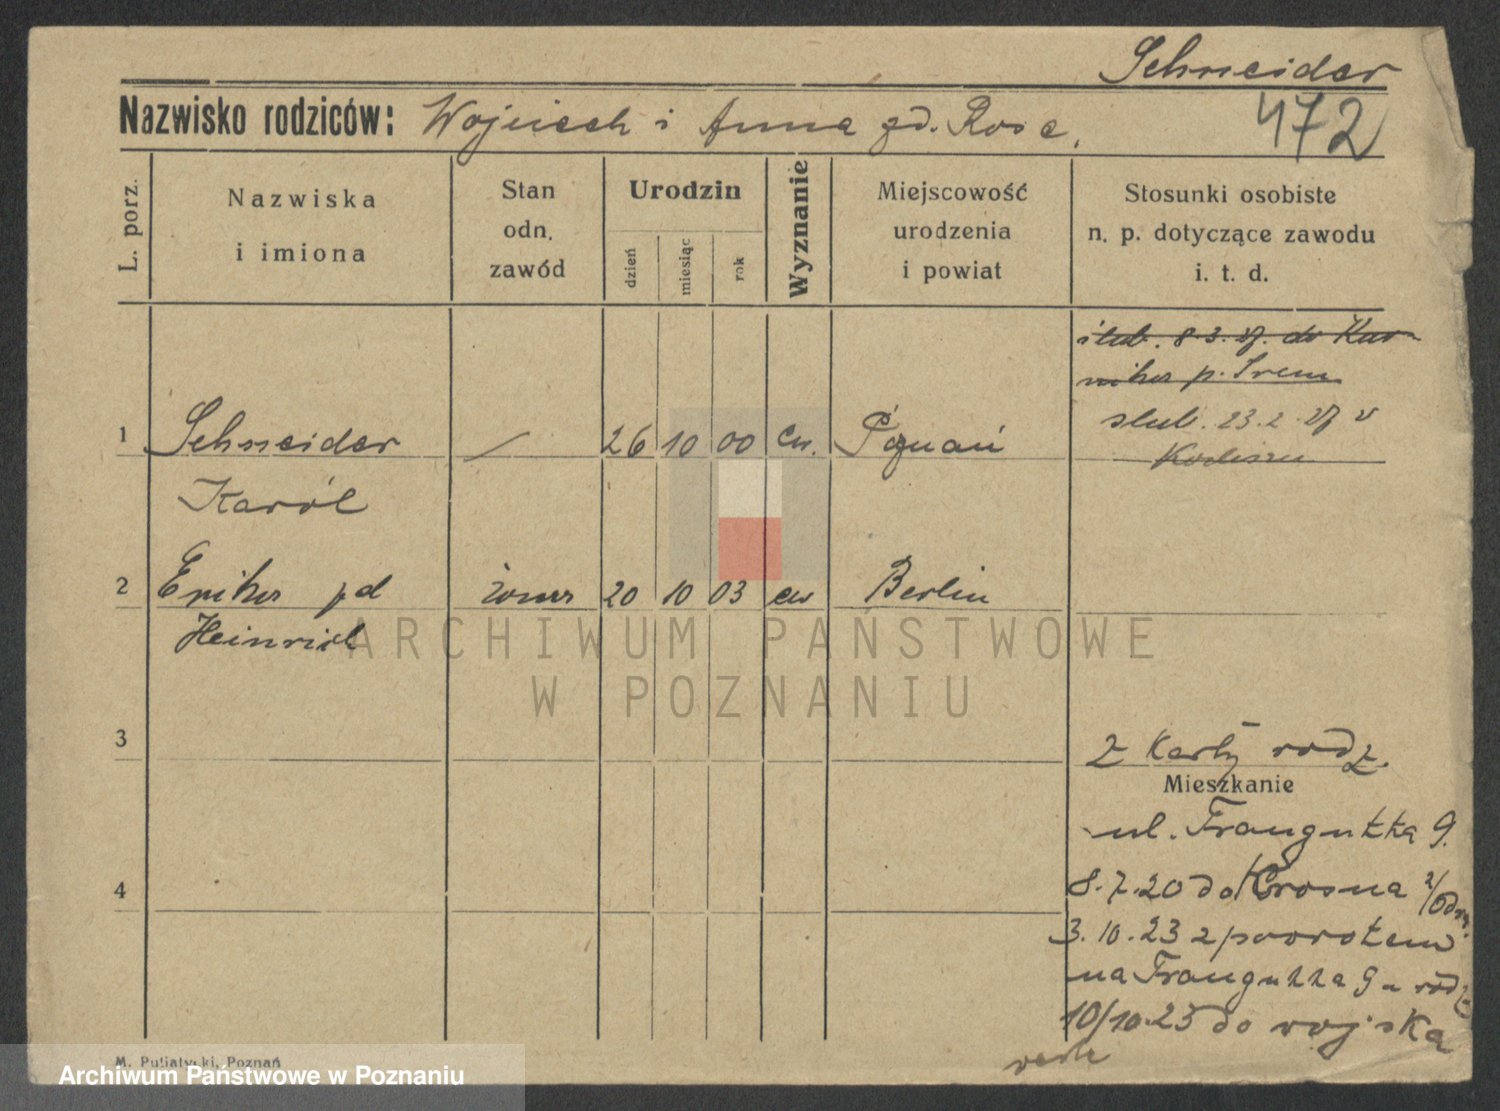 Schneider
Nazwisko rodziców: Wojciech i Anna zd. Rose.
472
L. porz.
Nazwiska
i imiona
Stan
odn.
zawód
Urodzin
dzień
miesiąc
rok
Wyznanie
Miejscowość
urodzenia
i powiat
Stosunki osobiste
n. p. dotyczące zawodu
i. t. d.
ślub. 8.3.27. do
p. Śrem
ślub. 23.2.27 v
1 Schneider 26 10 00 ew. Poznań
Karól
2 zd żona 20 10 03 ew Berlin
Heinrich
3
z Karty rodz.
Mieszkanie
ul. 9.
4
8.7.20 do Krosna n/Odrą.
3.10.23 z powrotem
na 9 u rodz
10/10.23 do wojska
M. Putiatycki, Poznań
ARCHIWUM PAŃSTWOWE
W POZNANIU
Archiwum Państwowe w Poznaniu